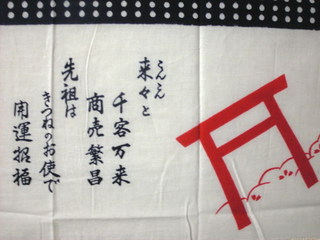 らんらん
来々と
千客万来
商売繁昌
先祖は
きつねのお使で
開運招福